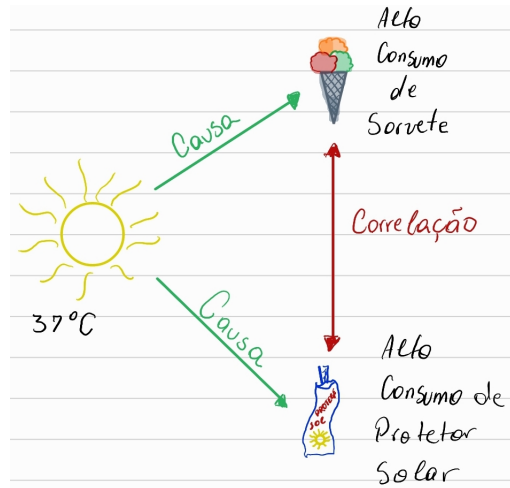 Alto
Consumo
de
Sorvete
Causa
Correlação
37°C
Causa
PROTETOR
SOL
Alto
Consumo de
Protetor
Solar